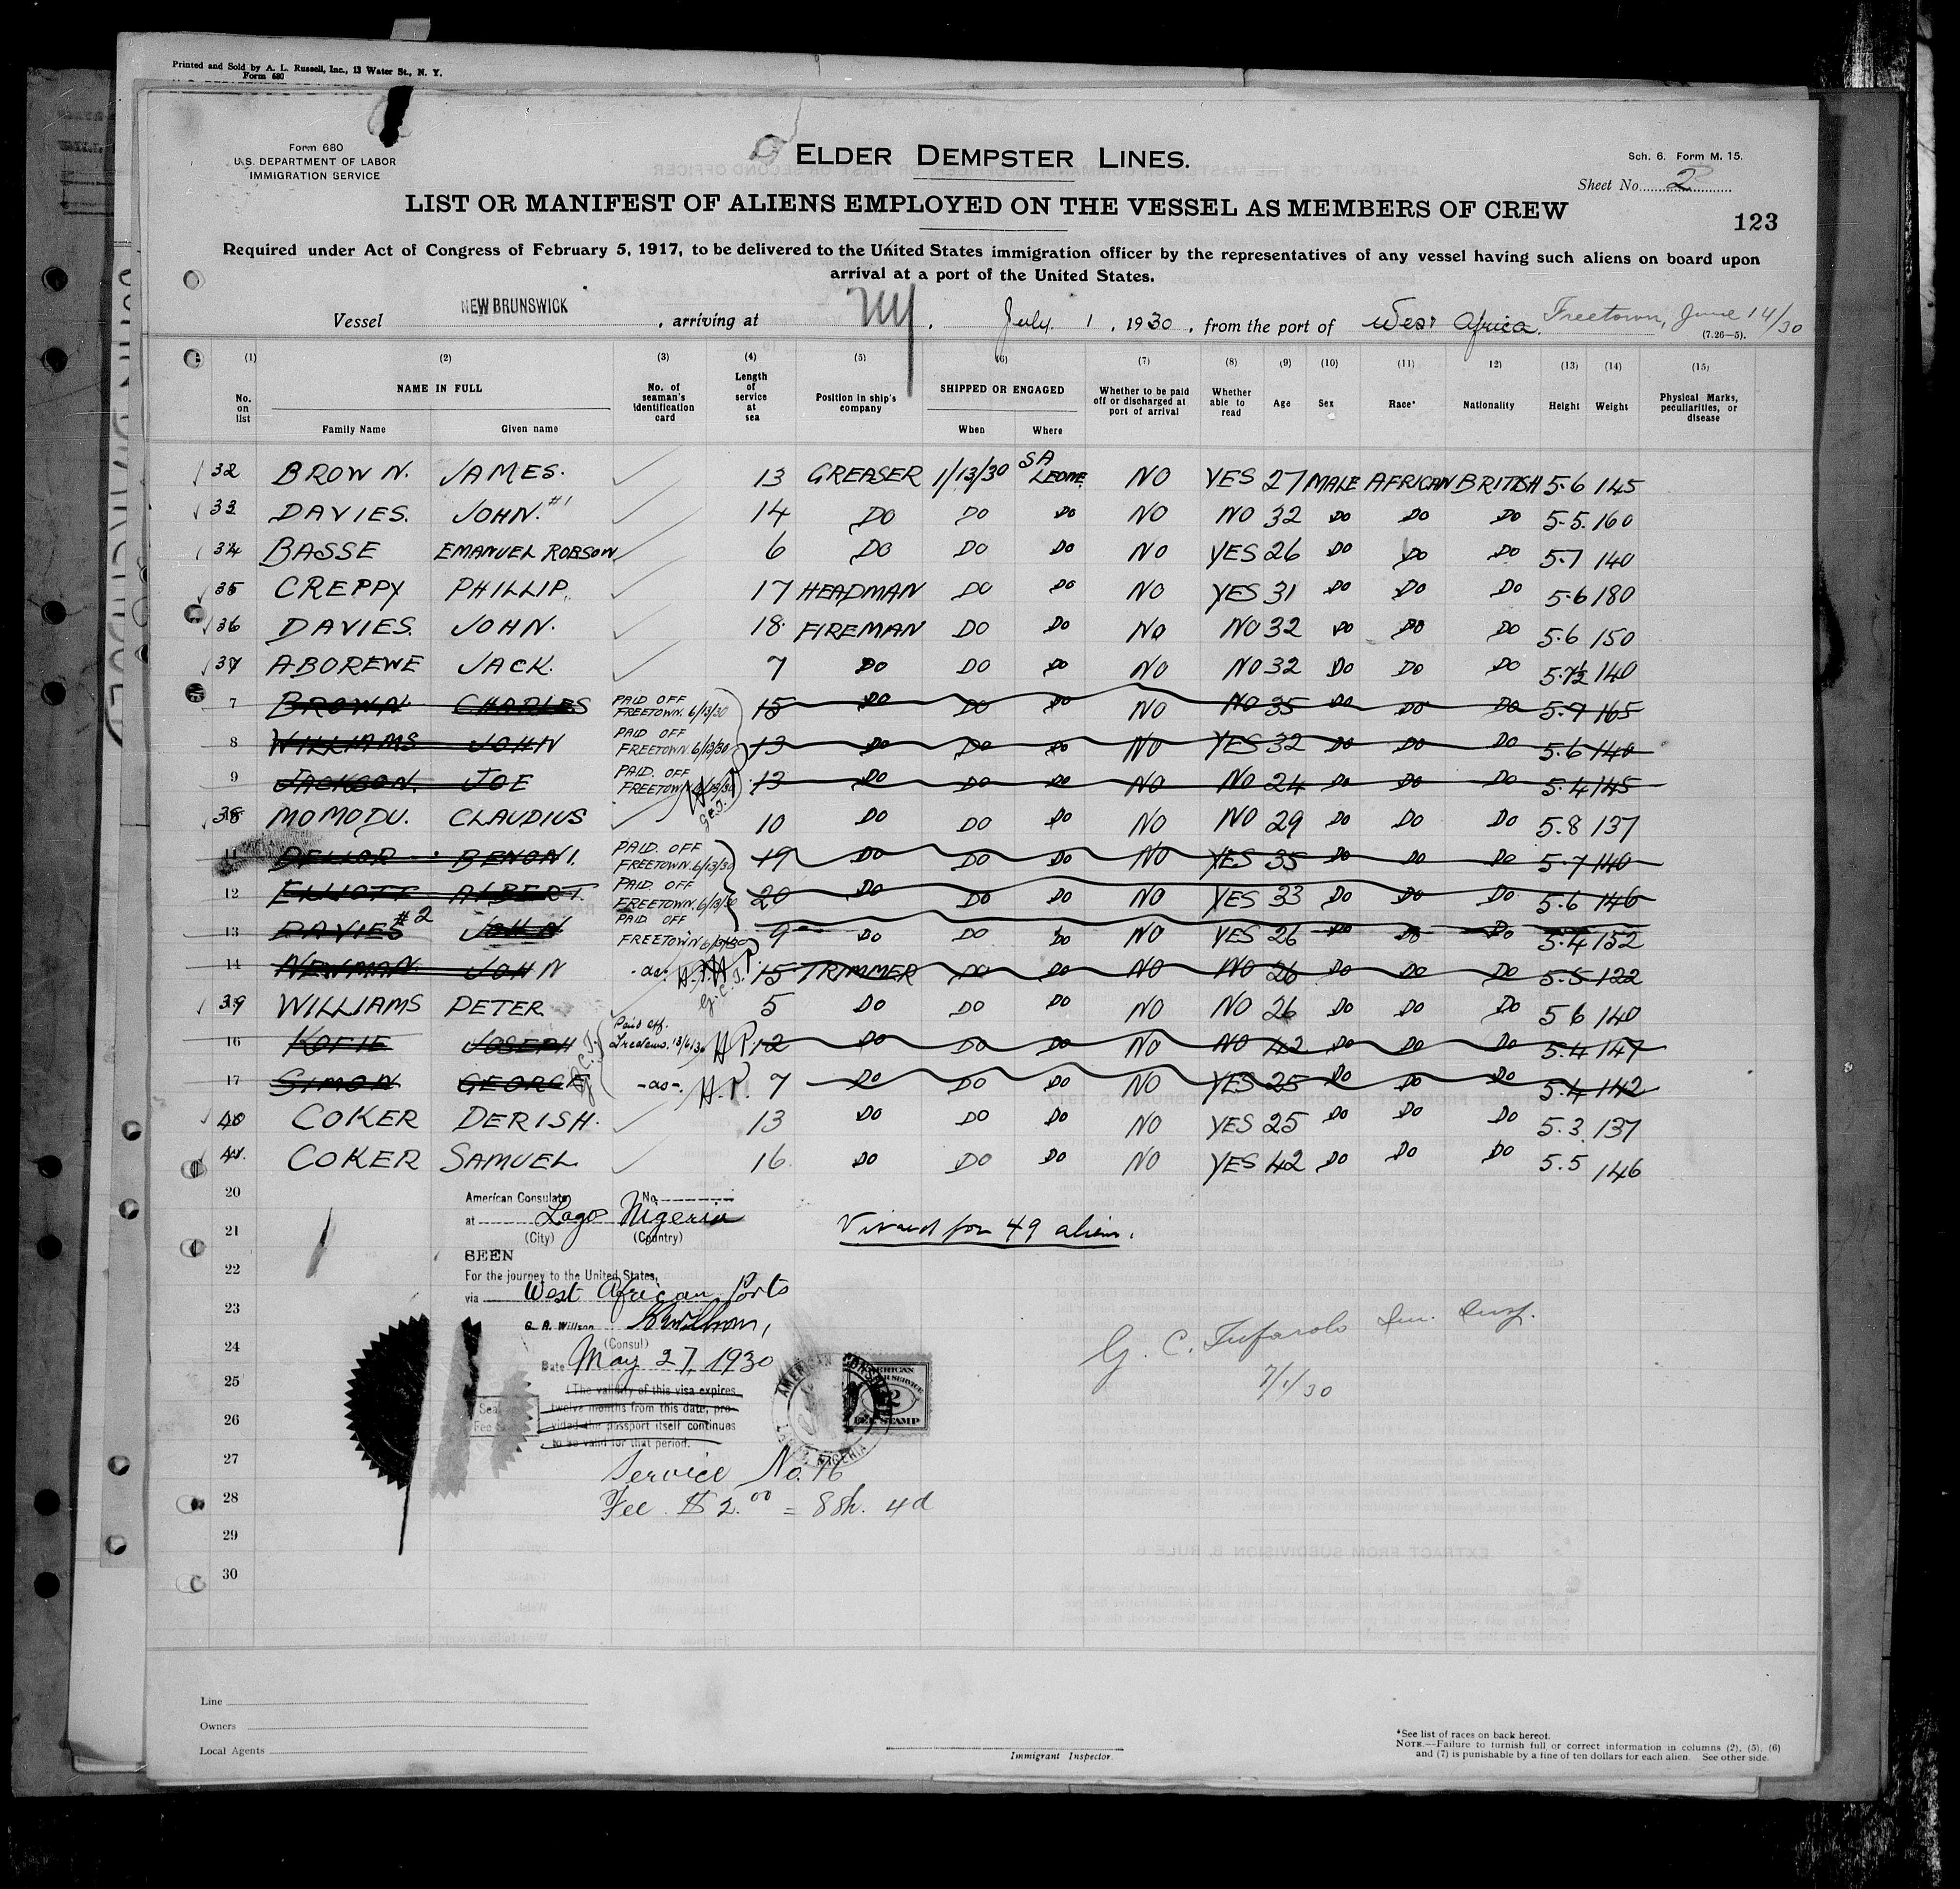 Printed and Sold by A. L. Russell, Inc., 13 Water St., N. Y.
Form 680
Form 680
U.S. DEPARTMENT OF LABOR
IMMIGRATION SERVICE
ELDER DEMPSTER LINES.
Sch. 6. Form M. 15.
Sheet No. 2
LIST OR MANIFEST OF ALIENS EMPLOYED ON THE VESSEL AS MEMBERS OF CREW
123
Required under Act of Congress of February 5, 1917, to be delivered to the United States immigration officer by the representatives of any vessel having such aliens on board upon
arrival at a port of the United States.
Vessel NEW BRUNSWICK, arriving at NY, July 1, 1930, from the port of West Africa. Freetown, June 14/30
(7.26—5).
(1) (2) (3) (4) (5) (6) (7) (8) (9) (10) (11) 12) (13) (14) (15)
No. on list NAME IN FULL Family Name Given name No. of seaman's identification card Length of service at sea Position in ship's company SHIPPED OR ENGAGED When Where Whether to be paid off or discharged at port of arrival Whether able to read Age Sex Race* Nationality Height Weight Physical Marks, peculiarities, or disease
32 BROWN. JAMES. 13 GREASER 1/13/30 SA LEONE. NO YES 27 MALE AFRICAN BRITISH 5.6 145
33 DAVIES. JOHN. #1 14 DO DO DO NO NO 32 DO DO DO 5.5. 160
34 BASSE EMANUEL ROBSON 6 DO DO DO NO YES 26 DO DO DO 5.7 140
35 CREPPY PHILLIP. 17 HEADMAN DO DO NO YES 31 DO DO DO 5.6 180
36 DAVIES. JOHN. 18. FIREMAN DO DO NO NO 32 DO DO DO 5.6 150
37 ABOREWE JACK. 7 DO DO DO NO NO 32 DO DO DO 5.7½ 140
7 BROWN CHARLES PAID OFF FREETOWN. 6/13/30 15 DO DO DO NO NO 35 DO DO DO 5.9 165
8 WILLIAMS JOHN PAID OFF FREETOWN. 6/13/30 13 DO DO DO NO YES 32 DO DO DO 5.6 140
9 JACKSON. JOE PAID. OFF FREETOWN 6/13/30 13 DO DO DO NO NO 24 DO DO DO 5.4 145
38 MOMODU. CLAUDIUS 10 DO DO DO NO NO 29 DO DO DO 5.8 137
11 DELLOR BENONI. PAID. OFF FREETOWN. 6/13/30 19 DO DO DO NO YES 35 DO DO DO 5.7 140
12 ELLIOTT ALBERT. PAID. OFF FREETOWN. 6/13/30 20 DO DO DO NO YES 33 DO DO DO 5.6 146
13 DAVIES #2 JOHN PAID OFF FREETOWN 6/13/30 9 DO DO DO NO YES 26 DO DO DO 5.4 152
14 NEWMAN. JOHN -do- H.P. G.C.T. 15 TRIMMER DO DO NO NO 26 DO DO DO 5.5 122
39 WILLIAMS PETER 5 DO DO DO NO NO 26 DO DO DO 5 6 140
16 KOFIE JOSEPH Paid off. Freetown. 13/6/30 H.P. 12 DO DO DO NO NO 42 DO DO DO 5.4 147
17 SIMON GEORGE G.C.T. -do-. H.P. 7 DO DO DO NO YES 25 DO DO DO 5.4 142
40 COKER DERISH. 13 DO DO DO NO YES 25 DO DO DO 5.3. 137
41. COKER SAMUEL 16. DO DO DO NO YES 42 DO DO DO 5.5 146
20
American Consulate No.
at Lagos Nigeria
(City) (Country)
21
Visaed for 49 aliens.
SEEN
22
For the journey to the United States,
via West African Ports
23
G. A. Willson
(Consul)
24
Date May 27, 1930
G. C. Tufarolo Im. Insp.
7/1/30
25
(The validity of this visa expires
twelve months from this date, pro-
26
vided the passport itself continues
to be valid for that period.
AMERICAN
FEE STAMP
27
Service No. 16
28
Fee. $2.00 = 8sh. 4d
29
30
Line
Owners
Local Agents
Immigrant Inspector.
*See list of races on back hereof.
NOTE.—Failure to furnish full or correct information in columns (2), (5), (6)
and (7) is punishable by a fine of ten dollars for each alien. See other side.